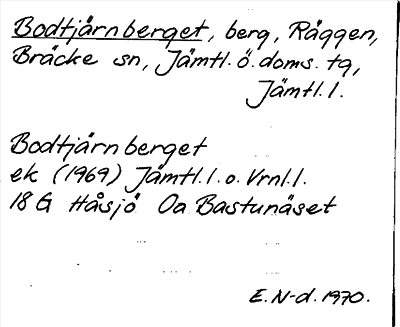 Bodtjårnberget, berg, Råggen,
Bräcke sn, Jämtl. ö. doms. tg,
Jämtl. l.
Bodtjårnberget
ek (1969) Jämtl. l. o. Vrnl. l.
18 G Håsjö Oa Bastunäset
E. N-d. 1970.